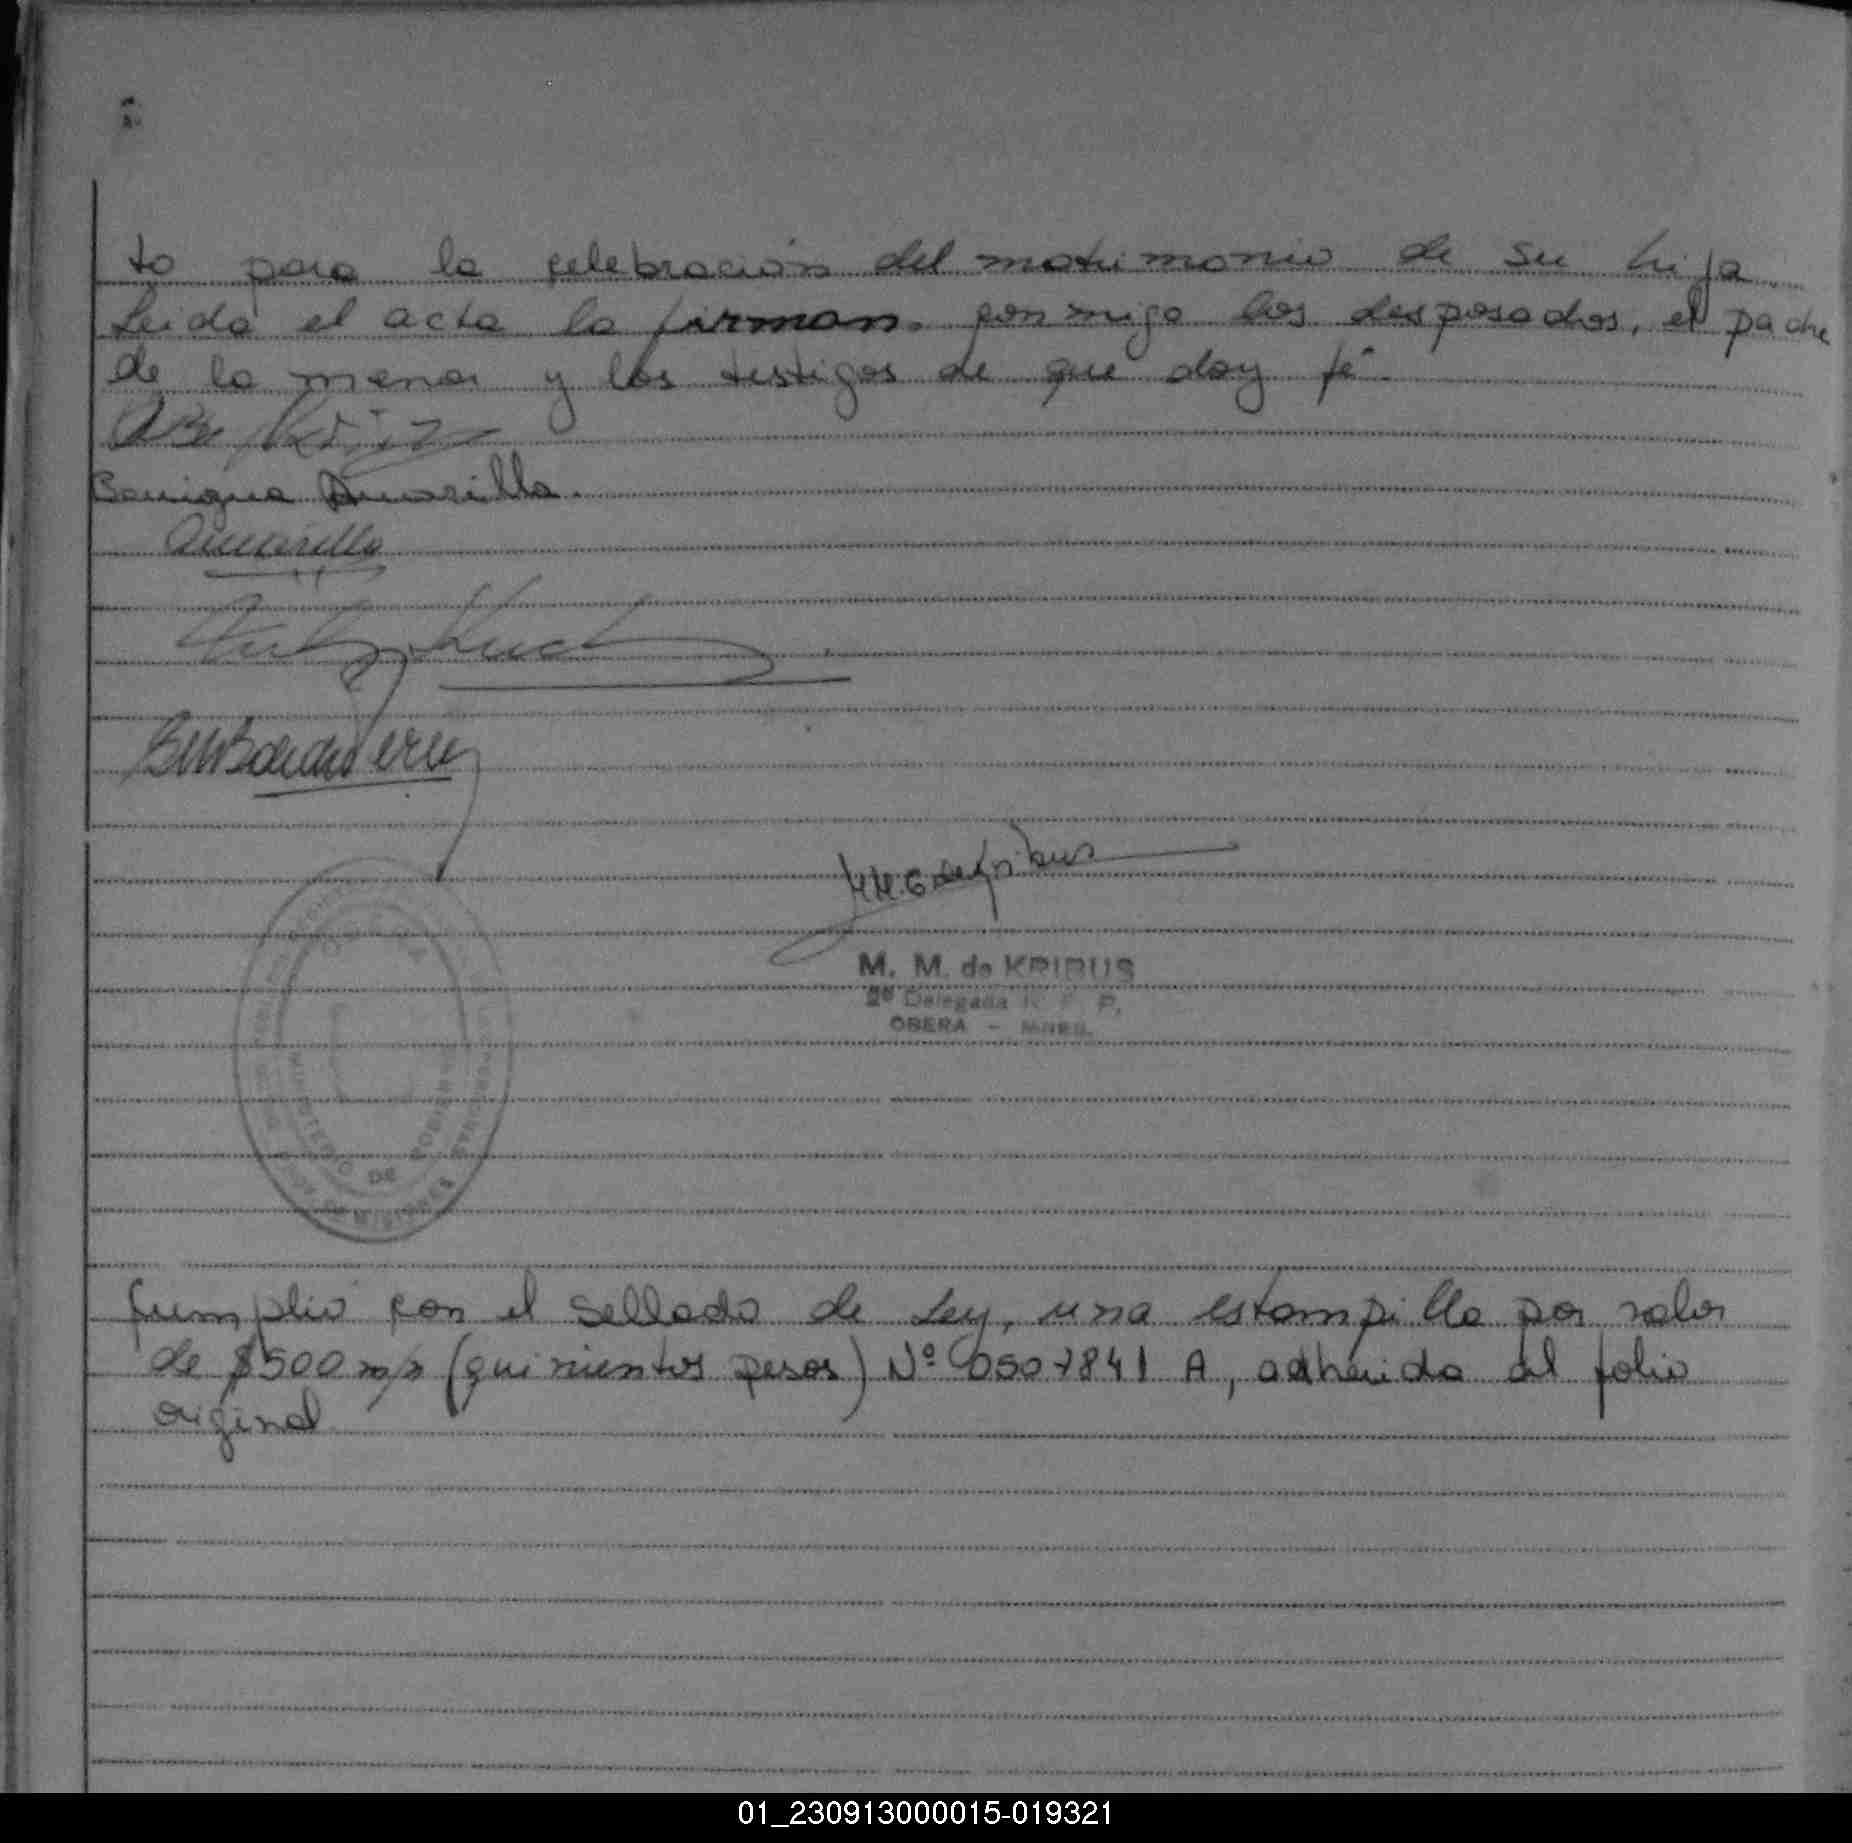 to para la celebración del matrimonio de su hija
Leida el acta la firman conmigo los desposados, el padre
de la menor y los testigos de que doy fé.
Benigna Amarilla.
Amarilla
M. M. de KRIBUS
2º Delegada R. P.
OBERA - MNES.
MINISTERIO DE GOBIERNO
MISIONES
Cumplió con el sellado de Ley, una estampilla por valor
de $500 m/n (quinientos pesos) Nº 0507841 A, adherida al folio
original
01_230913000015-019321